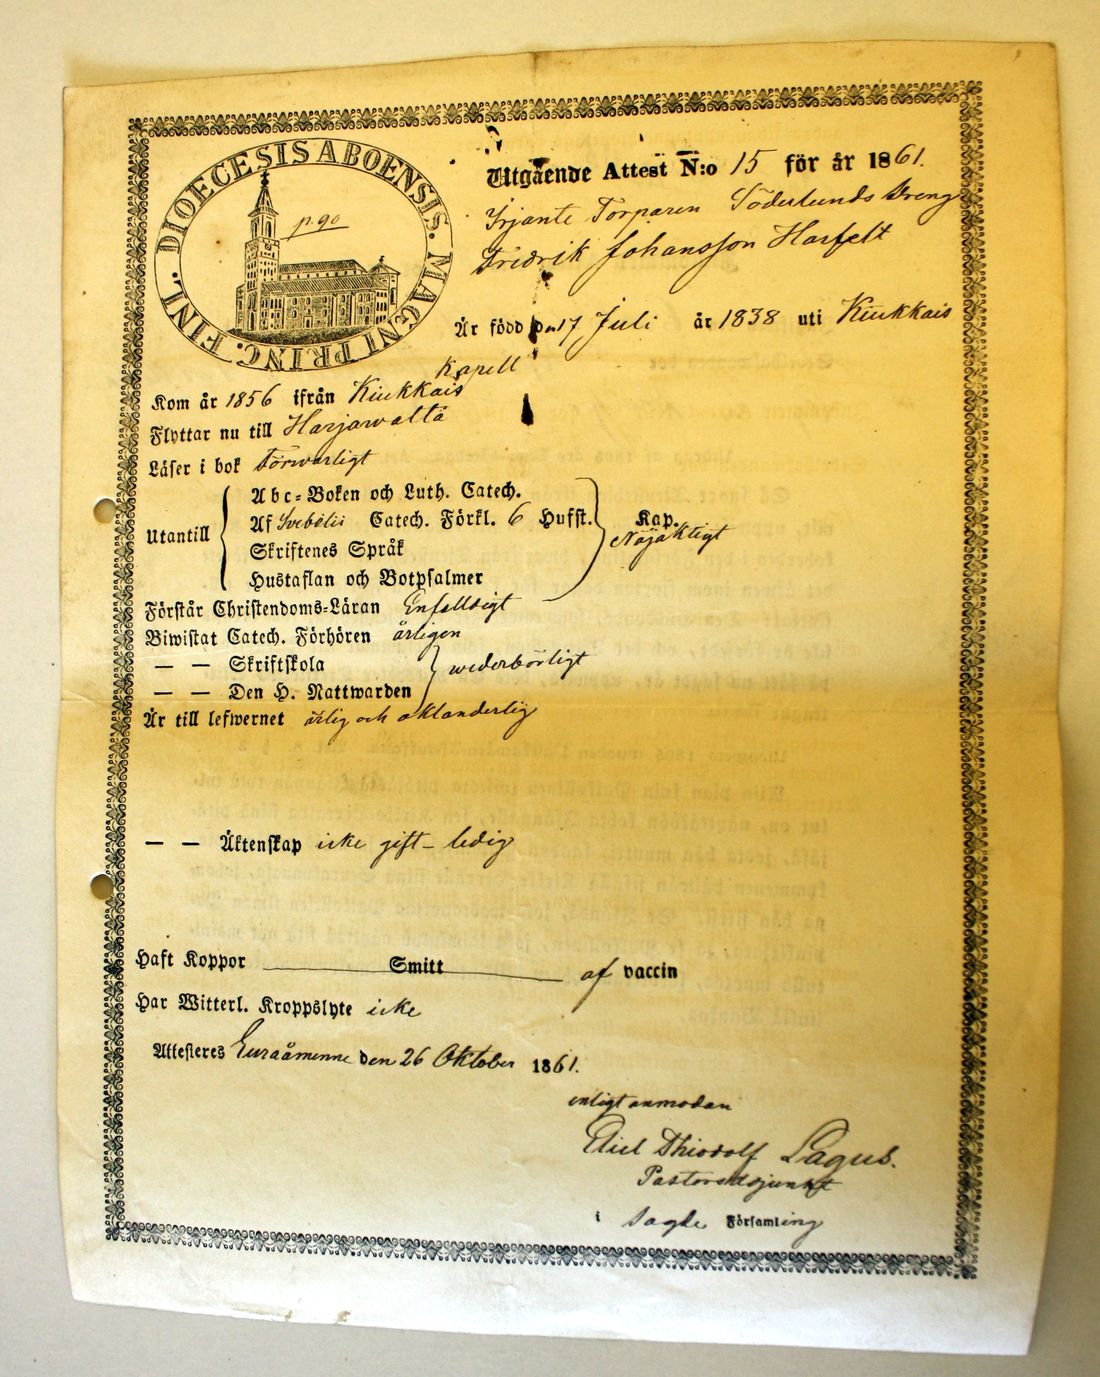 DIOECESIS ABOENSIS. MAGNI PRINC. FINL.
p. 90
Utgående Attest N:o 15 för år 1861.
Irjante Torparen Söderlunds Dreng
Fredrik Johansson Harfelt
Är född den 17 Juli år 1838 uti Kiukkais
Kapell
Kom år 1856 ifrån Kiukkais
Flyttar nu till Harjawalta
Läser i bok Förswarligt
Utantill
Abc-Boken och Luth. Catech.
Af Svebelii Catech. Förkl. 6 Hufst. Kap.
Skriftenes Språk
Hustaflan och Botpsalmer
Nöjaktigt
Förstår Christendoms-Läran Enfalldigt
Biwistat Catech. Förhören årligen
— — Skriftskola
— — Den H. Nattwarden
wederbörligt
Är till lefwernet ärlig och oklanderlig
— — Äktenskap icke gift - ledig
Haft Koppor Smitt af vaccin
Har Witterl. Kroppslyte icke
Attesteres Euraåminne den 26 Oktober 1861.
enligt anmodan
Thiodolf Lagus.
Pastorsadjunkt
i sagde Församling